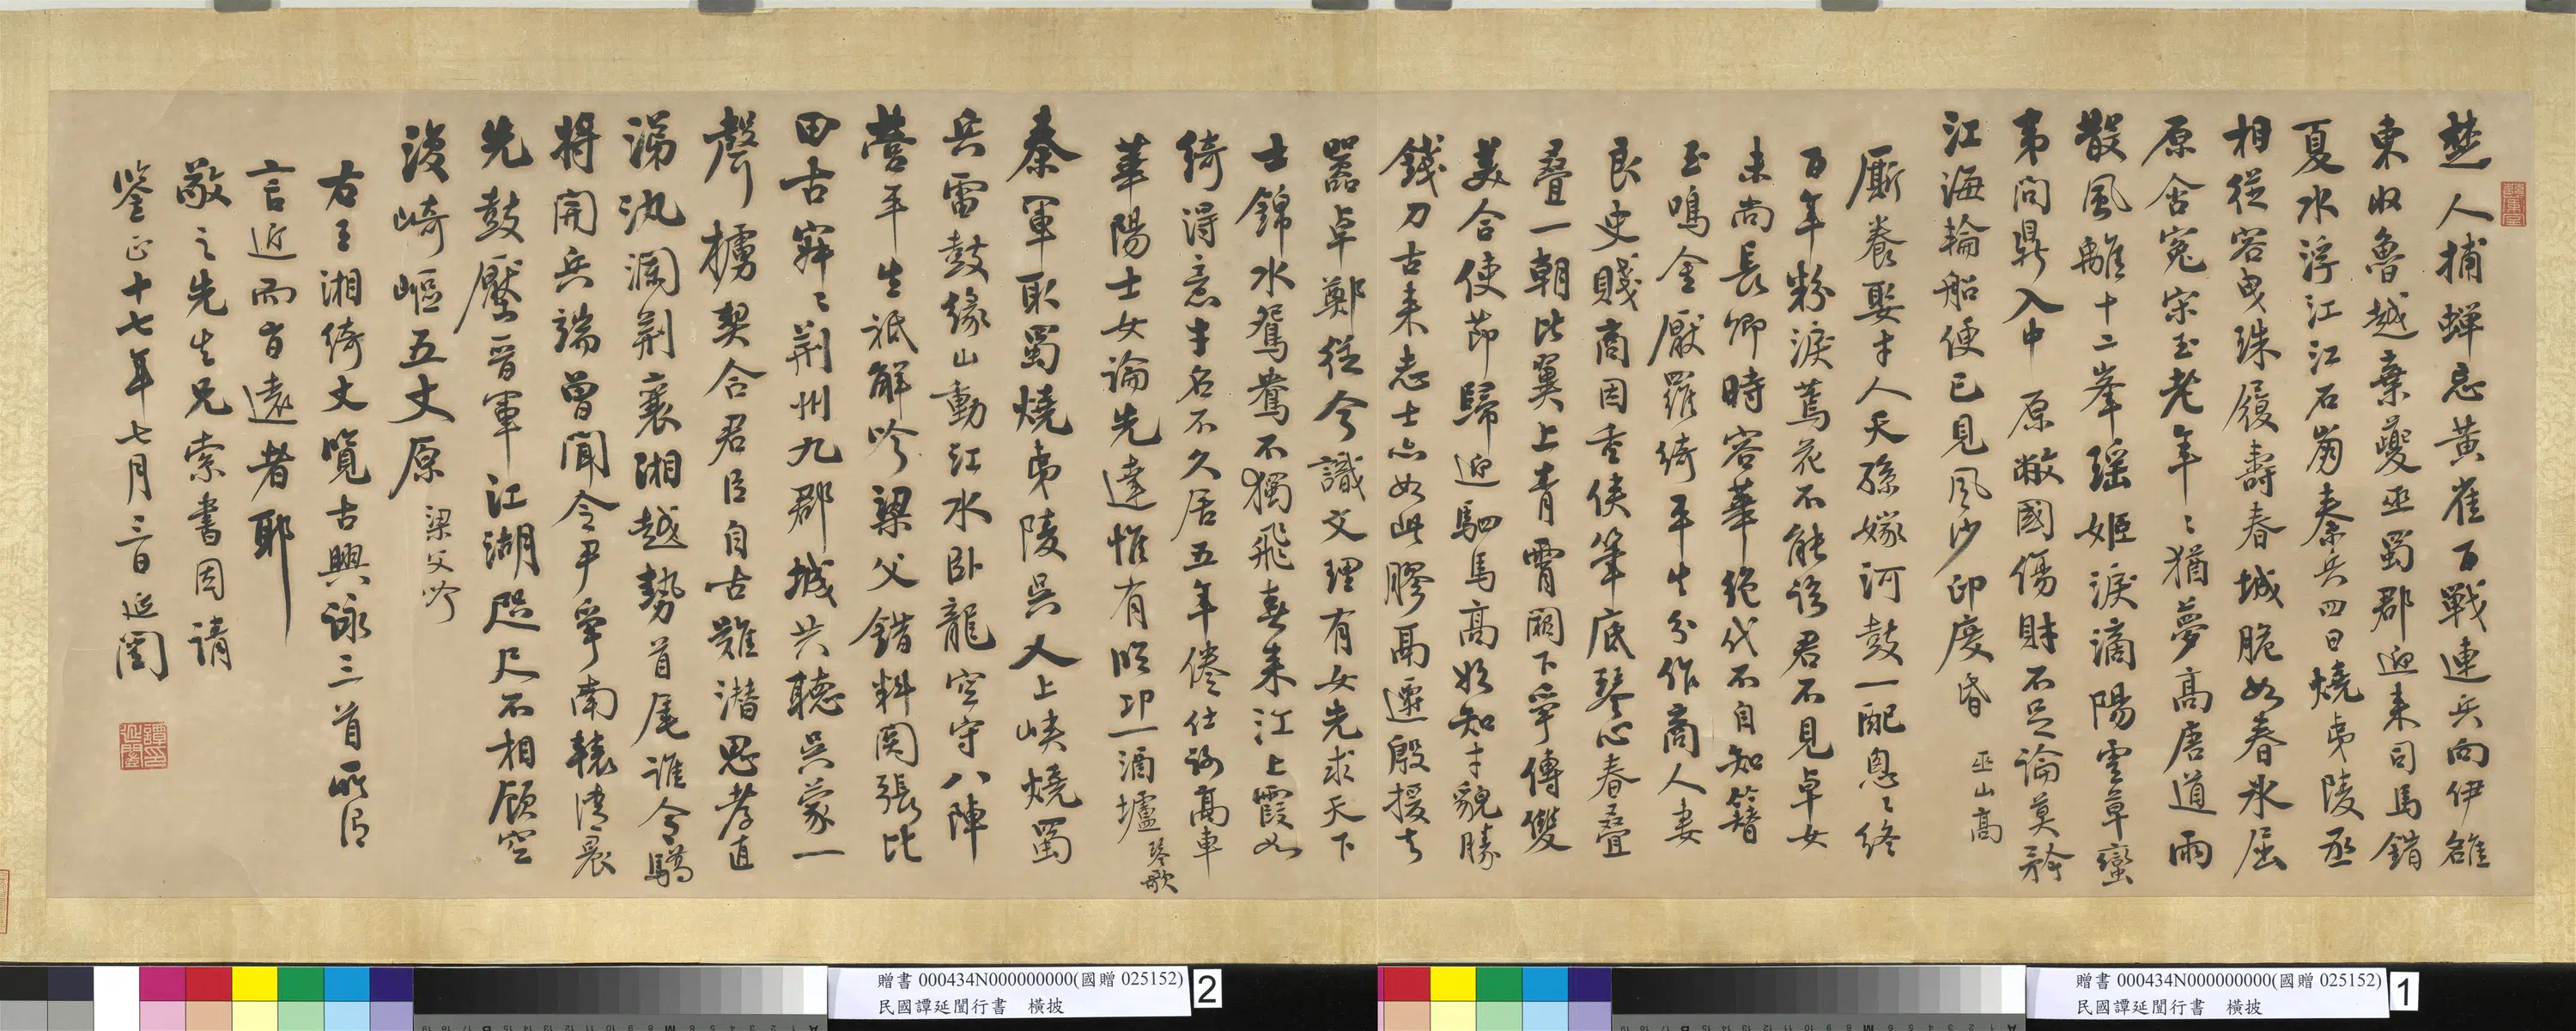 楚人捕蟬忘黃雀百戰連兵向伊雒
東收魯越棄夔巫蜀郡迎來司馬錯
夏水浮江江石崩秦兵四日燒夷陵丞
相從容曳珠履壽春城脆如春冰屈
原含冤宋玉老年〻猶夢高唐道雨
散風離十二峯瑤姬淚滴陽雲草蠻
夷問鼎入中原敝國傷財不足論莫矜
江海輪船便已見風沙印度昏 巫山高
廝養娶才人天孫嫁河鼓一配悤〻終
百年粉淚蔫花不能語君不見卓女
未尚長卿時容華絕代不自知簪
玉鳴金厭羅綺平生分作商人妻
良史賤商因重俠筆底琴心春疊
疊一朝比翼上青霄闕下爭傳雙
美合使節歸迎駟馬高始知才貌勝
錢刀古來志士亦如此膠鬲遷殷援去
嚻卓鄭從今識文理有女先求天下
士錦水鴛鴦不獨飛春來江上霞如
綺得意才名不久居五年倦仕謝高車
華陽士女論先達惟有臨邛一酒壚 琴歌
秦軍取蜀燒夷陵吳人上峽燒蜀
兵雷鼓緣山動江水臥龍空守八陣
營平生祇解吟梁父錯料關張比
田古冢〻荆州九郡城共聽吳蒙一
聲櫓契合君臣自古難潛思孝直
涕汍瀾荆襄湘越勢首尾誰令驕
將開兵端曾聞令尹爭南轅清晨
先鼓壓晉軍江湖咫尺不相顧空
渡崎嶇五丈原 梁父吟
右王湘綺丈覽古興詠三首所謂
言近而旨遠者耶
敬之先生兄索書因請
鑒正十七年七月三日延闓
譚延闓印
贈書 000434N000000000(國贈 025152)
民國譚延闓行書　橫披
2
贈書 000434N000000000(國贈 025152)
民國譚延闓行書　橫披
1